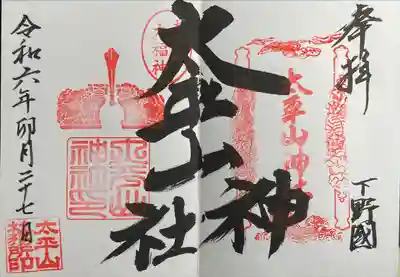 奉拝
下野國
太平山神社
太平山神社
太平山神社印
令和六年卯月二十七日
太平山